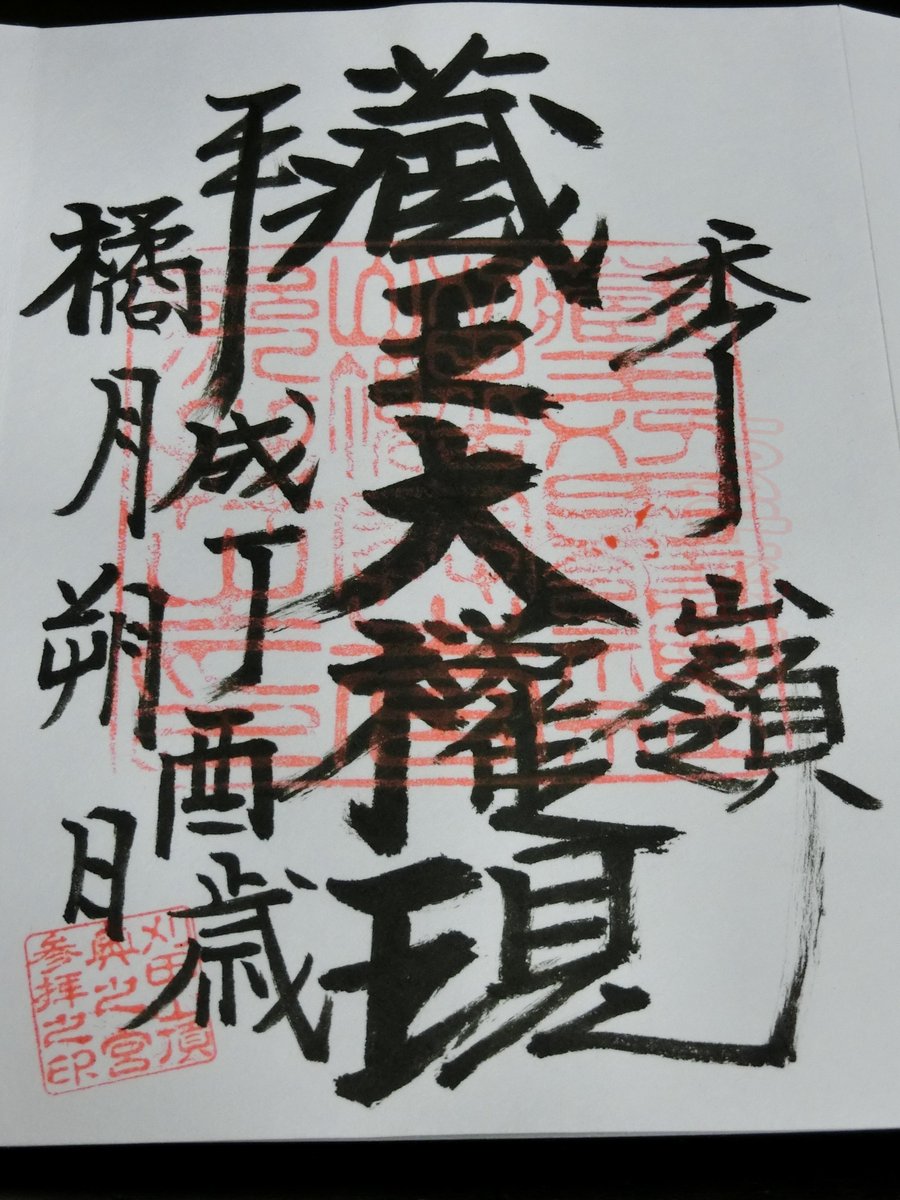 秀嶺
藏王大權現
平成丁酉歳
橘月朔日
刈田山頂
奥之宮
参拝之印